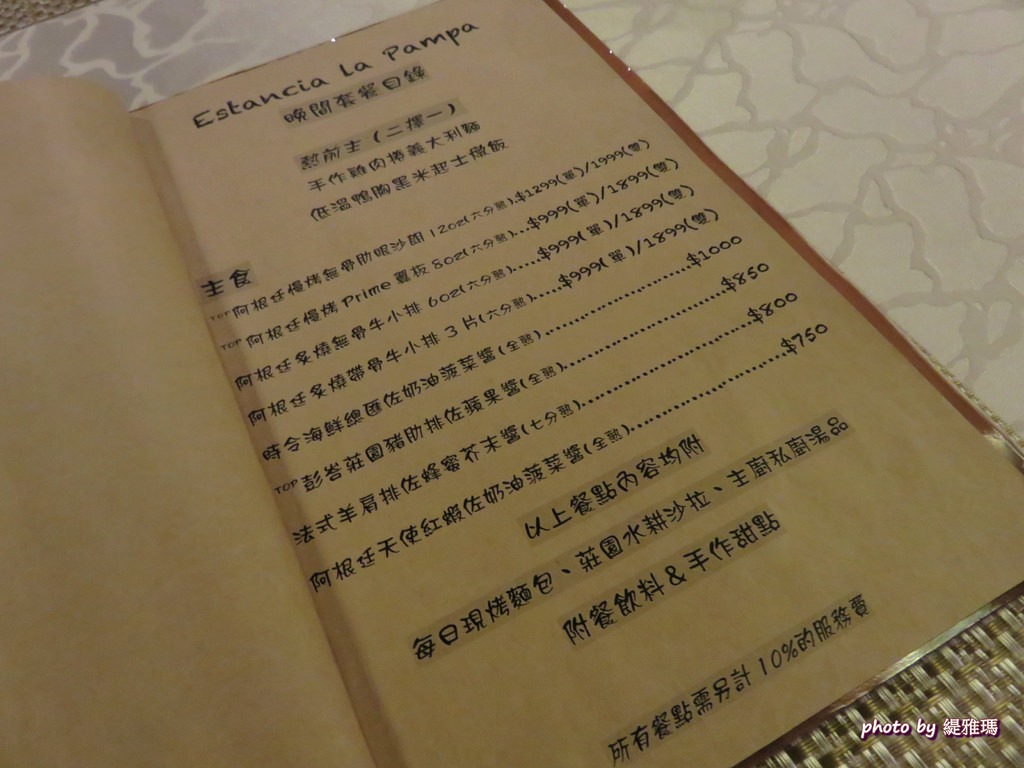 Estancia La Pampa
晚間套餐目錄
熱前主（二擇一）
手作雞肉捲義大利麵
低溫鴨胸黑米起士燉飯
主食
TOP 阿根廷慢烤無骨肋眼沙朗 12oz(六分熟).$1299(單)/1999(雙)
TOP 阿根廷慢烤 Prime 蓋板 8oz(六分熟)...$999(單)/1899(雙)
阿根廷炙燒無骨牛小排 6oz(六分熟).....$999(單)/1899(雙)
阿根廷炙燒帶骨牛小排 3 片(六分熟)....$999(單)/1899(雙)
時令海鮮總匯佐奶油菠菜醬(全熟)......................$1000
TOP 彭岩莊園豬肋排佐蘋果醬(全熟)......................$850
法式羊肩排佐蜂蜜芥末醬(七分熟)......................$800
阿根廷天使紅蝦佐奶油菠菜醬(全熟)....................$750
以上餐點內容均附
每日現烤麵包、莊園水耕沙拉、主廚私廚湯品
附餐飲料&手作甜點
所有餐點需另計 10%的服務費
photo by 緹雅瑪